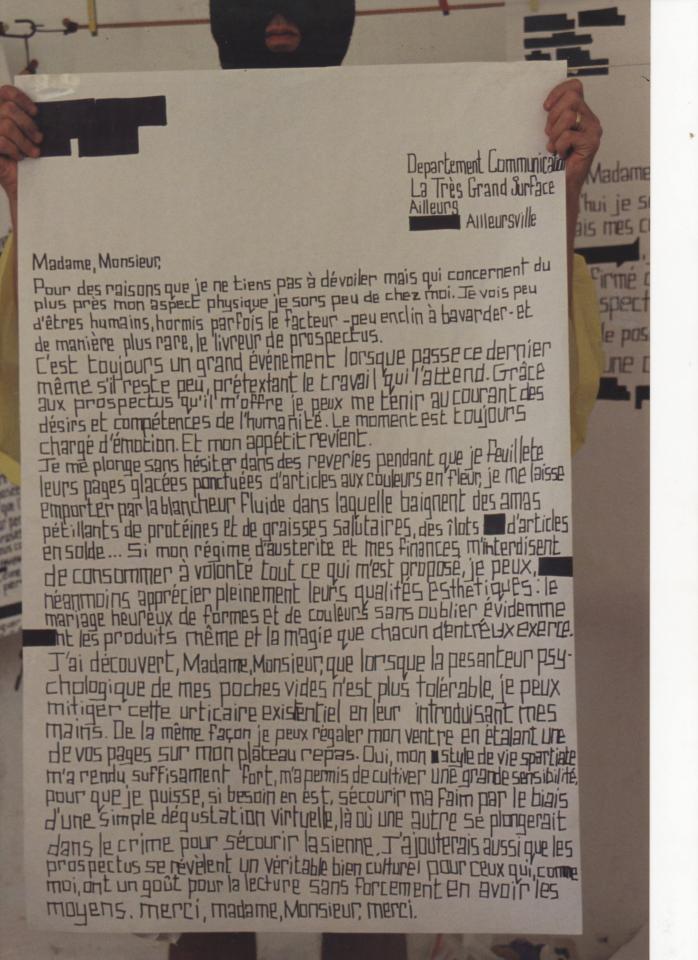 Departement Communicatio
La Très Grand Surface
Ailleurs
Ailleursville
Madame, Monsieur,
Pour des raisons que je ne tiens pas à dévoiler mais qui concernent du
plus près mon aspect physique je sors peu de chez moi. Je vois peu
d'êtres humains, hormis parfois le facteur - peu enclin à bavarder - et
de manière plus rare, le livreur de prospectus.
C'est toujours un grand événement lorsque passe ce dernier
même s'il reste peu, prétextant le travail qui l'attend. Grâce
aux prospectus qu'il m'offre je peux me tenir au courant des
désirs et compétences de l'humanité. Le moment est toujours
chargé d'émotion. Et mon appétit revient.
Je me plonge sans hésiter dans des reveries pendant que je feuillete
leurs pages glacées ponctuées d'articles aux couleurs en fleur, je me laisse
emporter par la blancheur fluide dans laquelle baignent des amas
pétillants de protéines et de graisses salutaires, des îlots d'articles
en solde... Si mon régime d'austerite et mes finances m'interdisent
de consommer à volonté tout ce qui m'est proposé, je peux,
néanmoins apprécier pleinement leurs qualités esthétiques: le
mariage heureux de formes et de couleurs sans oublier évidemme
nt les produits même et la magie que chacun d'entreux exerce.
J'ai découvert, Madame, Monsieur, que lorsque la pesanteur psy-
chologique de mes poches vides n'est plus tolérable, je peux
mitiger cette urticaire existentiel en leur introduisant mes
mains. De la même façon je peux régaler mon ventre en étalant une
de vos pages sur mon plateau repas. Oui, mon style de vie spartiate
m'a rendu suffisament fort, m'a permis de cultiver une grande sensibilité,
pour que je puisse, si besoin en est, sécourir ma faim par le biais
d'une simple dégustation virtuelle, là où une autre se plongerait
dans le crime pour sécourir la sienne. J'ajouterais aussi que les
prospectus se révèlent un véritable bien culturel pour ceux qui, comme
moi, ont un goût pour la lecture sans forcement en avoir les
moyens. merci, madame, Monsieur, merci.
Madame
'hui je s
ais mes c
firmé
spect
le pos
une